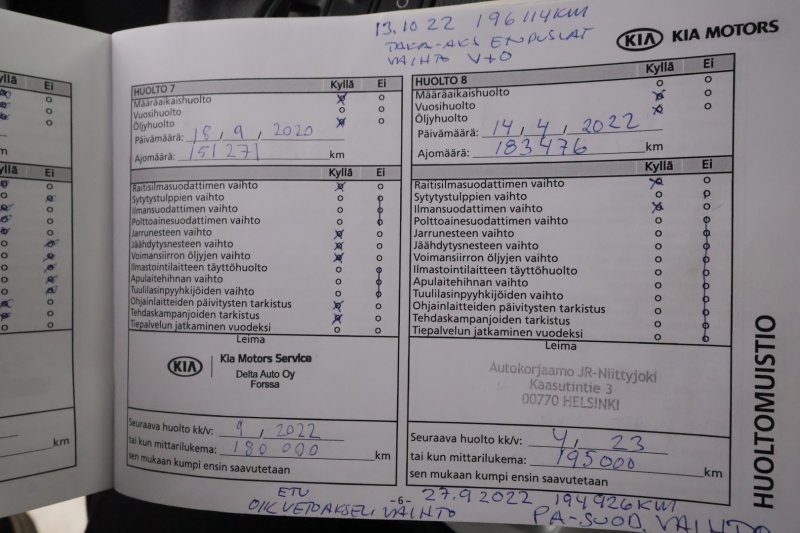 13.10 22 196114KM
TAKA-AKS EN PUSLAT
VAIHTO V+O
KIA KIA MOTORS
Kyllä Ei
km
km
HUOLTO 7 Kyllä Ei
Määräaikaishuolto
Vuosihuolto
Öljyhuolto
Päivämäärä: 18, 9, 2020
Ajomäärä: 151 271 km
Kyllä Ei
Raitisilmasuodattimen vaihto
Sytytystulppien vaihto
Ilmansuodattimen vaihto
Polttoainesuodattimen vaihto
Jarrunesteen vaihto
Jäähdytysnesteen vaihto
Voimansiirron öljyjen vaihto
Ilmastointilaitteen täyttöhuolto
Apulaitehihnan vaihto
Tuulilasinpyyhkijöiden vaihto
Ohjainlaitteiden päivitysten tarkistus
Tehdaskampanjoiden tarkistus
Tiepalvelun jatkaminen vuodeksi
Leima
KIA Kia Motors Service
Delta Auto Oy
Forssa
Seuraava huolto kk/v: 9, 2022
tai kun mittarilukema: 180 000 km
sen mukaan kumpi ensin saavutetaan
HUOLTO 8 Kyllä Ei
Määräaikaishuolto
Vuosihuolto
Öljyhuolto
Päivämäärä: 14, 4, 2022
Ajomäärä: 183476 km
Kyllä Ei
Raitisilmasuodattimen vaihto
Sytytystulppien vaihto
Ilmansuodattimen vaihto
Polttoainesuodattimen vaihto
Jarrunesteen vaihto
Jäähdytysnesteen vaihto
Voimansiirron öljyjen vaihto
Ilmastointilaitteen täyttöhuolto
Apulaitehihnan vaihto
Tuulilasinpyyhkijöiden vaihto
Ohjainlaitteiden päivitysten tarkistus
Tehdaskampanjoiden tarkistus
Tiepalvelun jatkaminen vuodeksi
Leima
Autokorjaamo JR-Niittyjoki
Kaasutintie 3
00770 HELSINKI
Seuraava huolto kk/v: 4, 23
tai kun mittarilukema: 195000 km
sen mukaan kumpi ensin saavutetaan
HUOLTOMUISTIO
-6-
ETU
OIK VETOAKSELI VAIHTO
27.9 2022 194926KM
PA-SUOD. VAIHTO